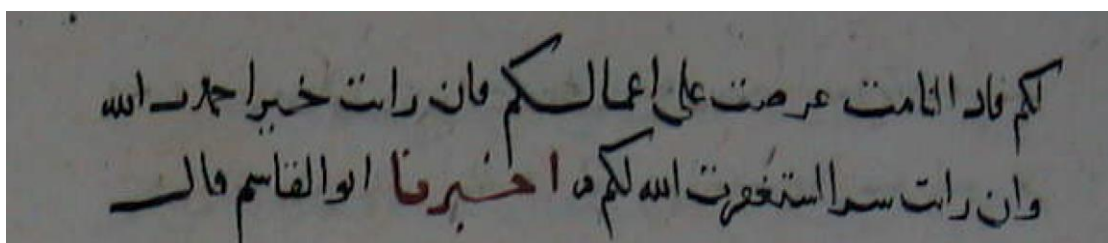 لكم فاذا انامت عرضت على اعمالكم فان رايت خيرا حمدت الله
وان رايت سرا استغفرت الله لكم اخبرنا ابو القاسم قال